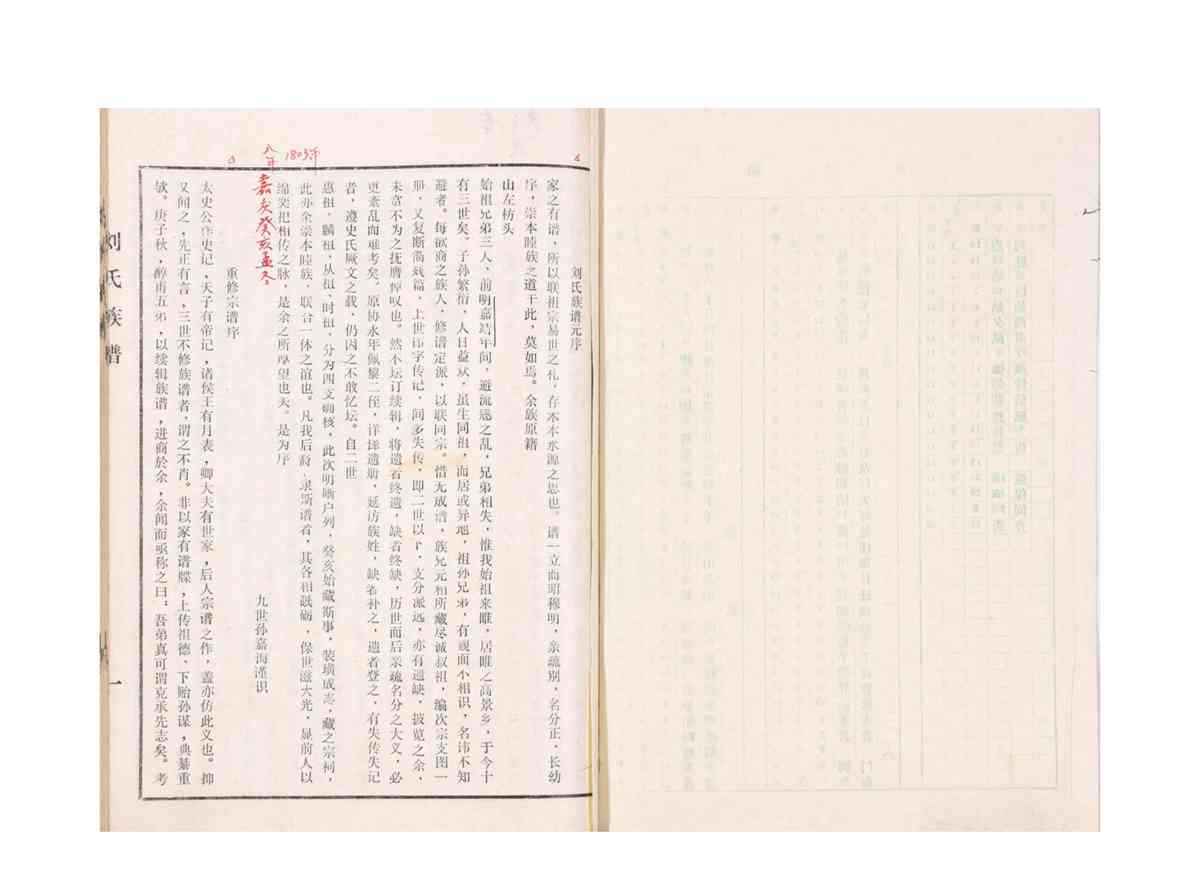 刘氏族谱元序
家之有谱，所以联祖宗易世之礼，存木本水源之思也。谱一立而昭穆明，亲疏别，名分正，长幼
序，崇本睦族之道于此，莫如焉。余族原籍
山左枋头
始祖兄弟三人，前明嘉靖年间，避流寇之乱，兄弟相失，惟我始祖来睢，居睢之高景乡，于今十
有三世矣。子孙繁衍，人日益众，虽生同祖，而居或异地，祖孙兄弟，有视面不相识，名讳不知
避者。每欲商之族人，修谱定派，以联同宗。惜无成谱，族兄元相所藏尽诚叔祖，编次宗支图一
册，又复断简残篇，上世讳字传记，间多失传，即二世以下，支分派远，亦有遗缺，披览之余，
未尝不为之抚膺悼叹也。然不坛订续辑，将遗者终遗，缺者终缺，历世而后亲疏名分之大义，必
更紊乱而难考矣。原协永年佩黎二侄，详绎遗册，延访族姓，缺者补之，遗者登之，有失传失记
者，遵史氏厥文之载，仍因之不敢忆坛。自二世
惠祖，麟祖，从祖，时祖，分为四支确核，此次明晰户列，癸亥始藏斯事，装璜成志，藏之宗祠，
此亦余崇本睦族，联合一体之谊也。凡我后裔，隶斯谱者，其各相砥砺，保世滋大光，显前人以
绵奕祀相传之脉，是余之所厚望也夫。是为序
九世孙嘉海谨识
八年 1803年
嘉庆癸亥孟冬。
重修宗谱序
太史公作史记，天子有帝记，诸侯王有月表，卿大夫有世家，后人宗谱之作，盖亦仿此义也。抑
又闻之，先正有言，三世不修族谱者，谓之不肖。非以家有谱牒，上传祖德、下贻孙谋，典綦重
欤。庚子秋，醉甫五弟，以续辑族谱，进商於余，余闻而亟称之曰。吾弟真可谓克承先志矣。考
刘氏族谱
一